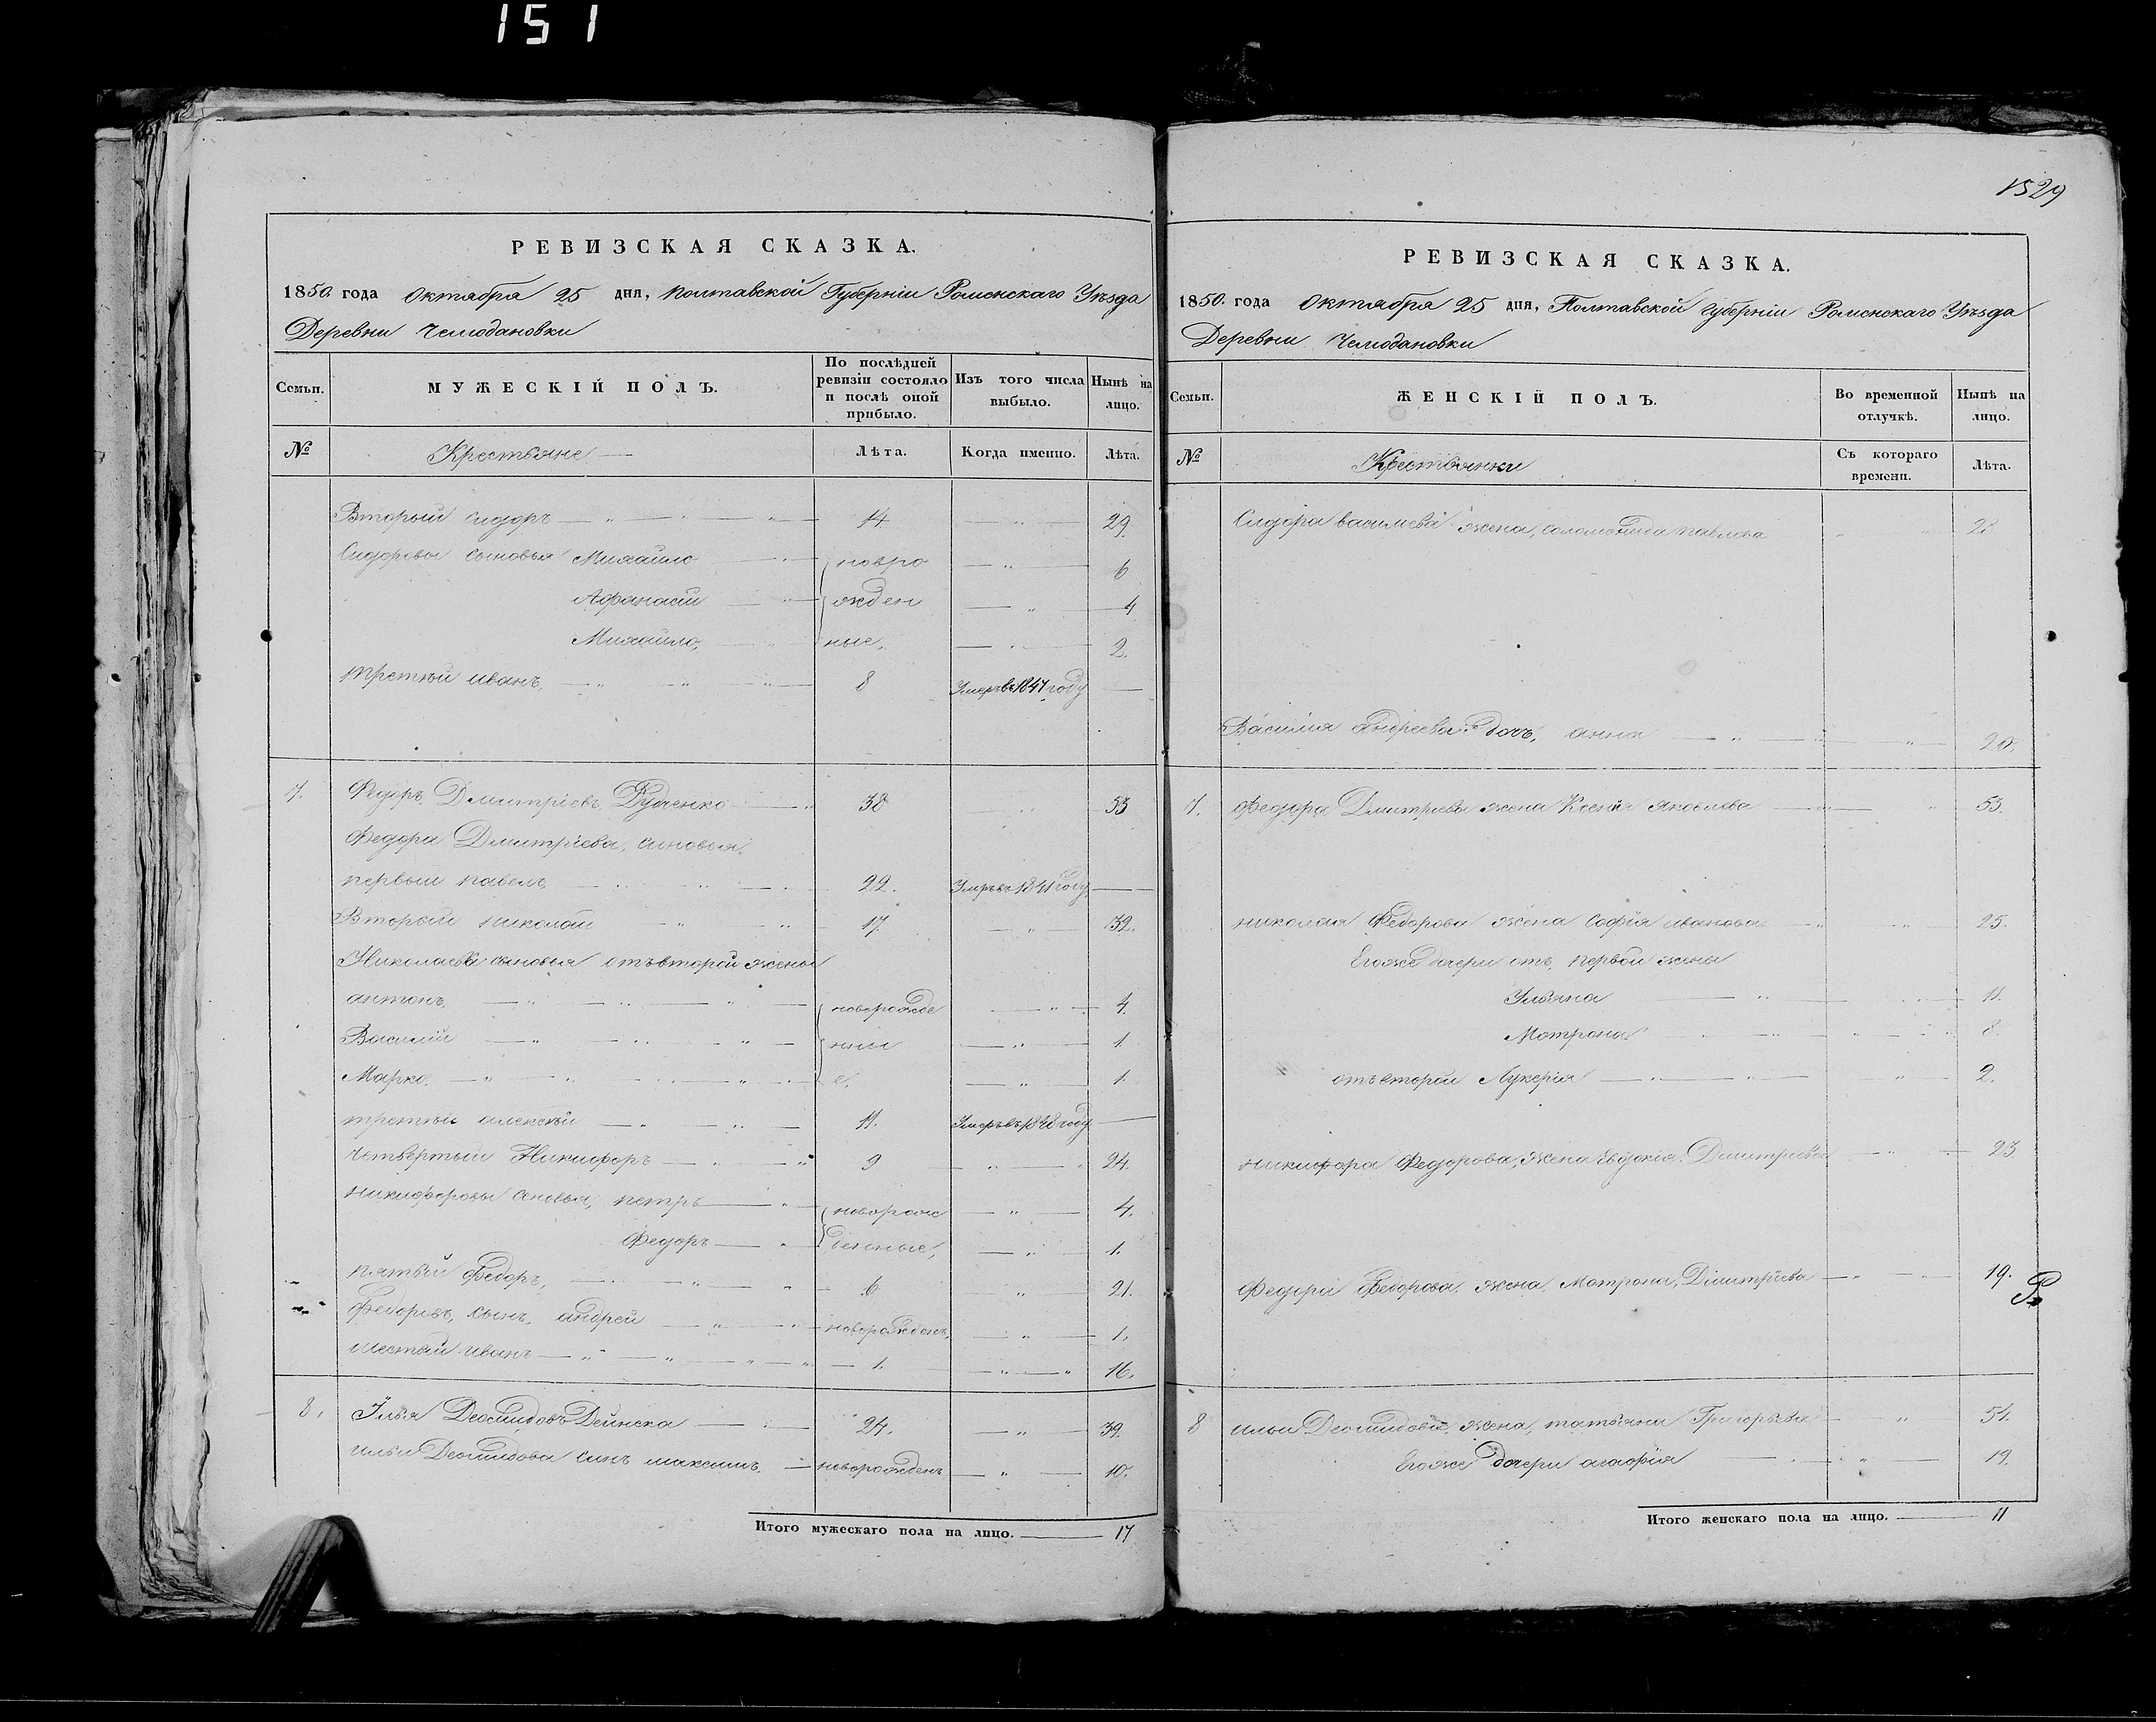 151
1529
РЕВИЗСКАЯ СКАЗКА.
1850. года Октября 25 дня, Полтавской Губерніи Роменскаго Уѣзда
Деревни Чемодановки
Семьи. МУЖЕСКІЙ ПОЛЪ. По послѣдней ревизіи состояло и послѣ оной прибыло. Изъ того числа выбыло. Нынѣ на лицо.
№ Крестьяне Лѣта. Когда именно. Лѣта.
Вторый Сидоръ 14 29.
Сидоровы сыновья Михайло новро 6
Афанасій жден 4
Михайло, ные, 2.
третій иванъ, 8 Умеръ въ 1847 году
7. Федоръ Дмитріевъ 38 53
Федора Дмитріева, синовья.
первый павелъ, 22. Умеръ въ 1841 году
Вторый николай 17. 32.
Николаевы сыновья отъ второй жены
антонъ, новорожде 4.
Василій нны 1.
Марко. е. 1.
третій алексѣй 11. Умеръ въ 1848 году
четвертый Никифоръ 9 24.
никифоровы сеновья, петръ новорож 4.
Федоръ денные, 1.
пятый Федоръ, 6 21.
Федоровъ, сынъ, андрей новорожденъ, 1.
шестый иванъ 1. 16.
8. Илья Дейнека 24. 39.
ильи синъ максимъ. новорожденъ 10.
Итого мужескаго пола на лицо. 17
РЕВИЗСКАЯ СКАЗКА.
1850. года Октября 25 дня, Полтавской губерніи Роменскаго Уѣзда
Деревни Чемодановки
Семьи. ЖЕНСКІЙ ПОЛЪ. Во временной отлучкѣ. Нынѣ на лицо.
№ Крестьянки Съ котораго времени. Лѣта.
Сидора василева жена, павлова
Василия андреева дочь, анна 20.
7. Федора Дмитріева жена Ксенія Яковлева 53.
николая Федорова жена софія иванова 25.
Егоже дочери отъ первой жены
Ульяна 11.
Мотрона 8.
отъ второй Лукерія 2.
никифора Федорова, жена Евдокія Дмитріева 23.
Федора Федорова, жена, Мотрона, Дмитріева 19.
8 ильи жена, татьяна Григорьева 54.
Егоже дочери агафія 19.
Итого женскаго пола на лицо. 11